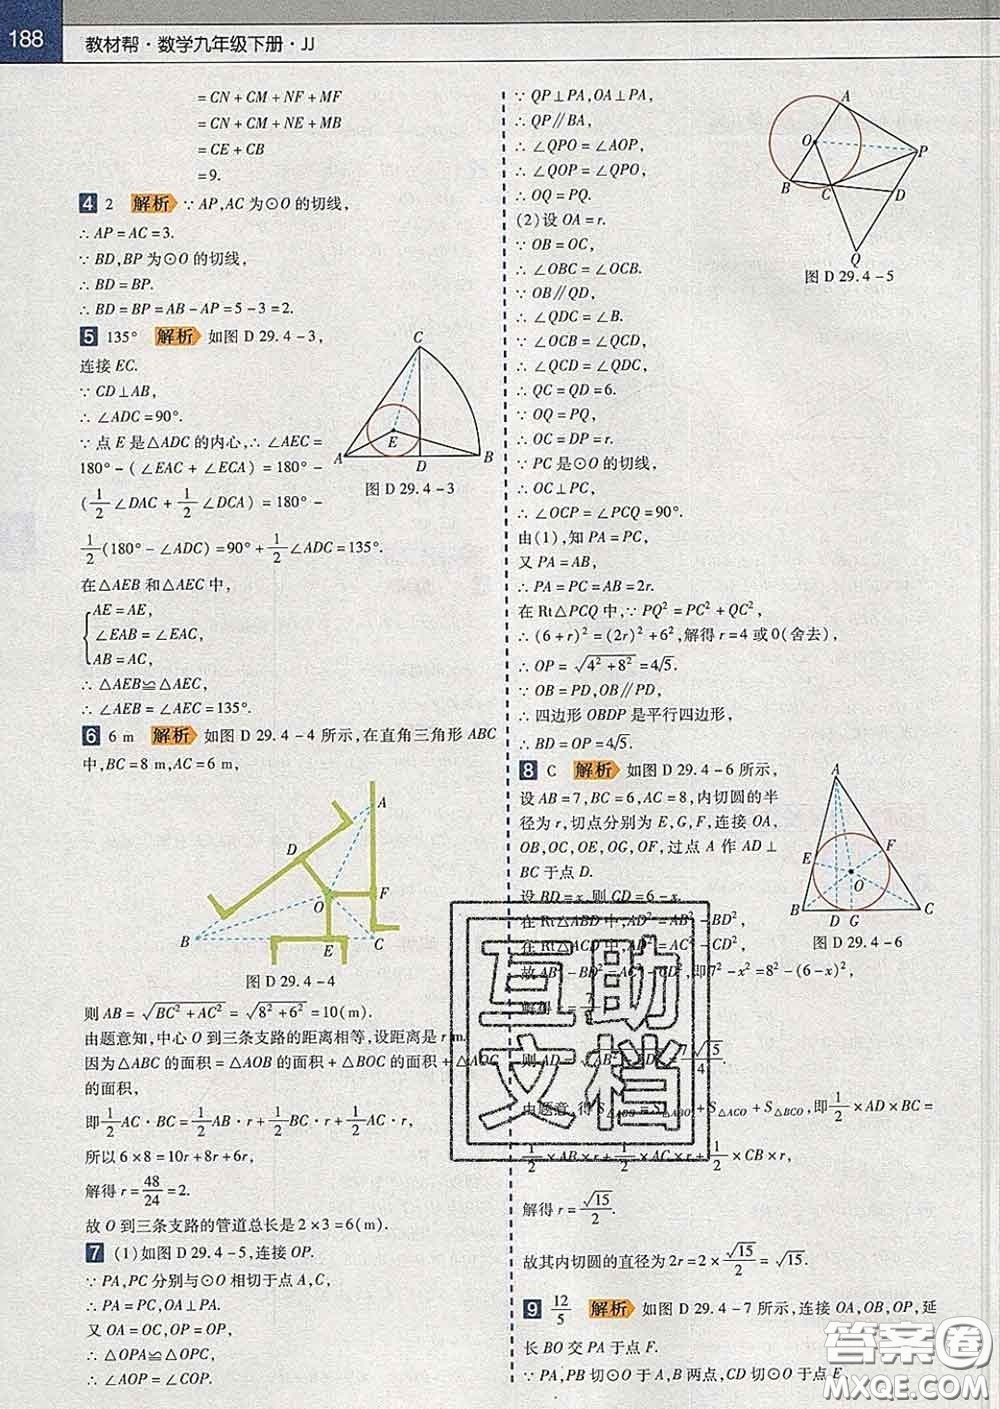 188
教材帮·数学九年级下册·JJ
=CN+CM+NF+MF
=CN+CM+NE+MB
=CE+CB
=9.
4 2 解析 ∵AP,AC为⊙O的切线,
∴AP=AC=3.
∵BD,BP为⊙O的切线,
∴BD=BP.
∴BD=BP=AB-AP=5-3=2.
5 135° 解析 如图D29.4-3,
连接EC.
∵CD⊥AB,
∴∠ADC=90°.
∵点E是△ADC的内心,∴∠AEC=
180°-(∠EAC+∠ECA)=180°-
(1/2∠DAC+1/2∠DCA)=180°-
1/2(180°-∠ADC)=90°+1/2∠ADC=135°.
C
E
A
D
B
图D29.4-3
在△AEB和△AEC中,
AE=AE,
∠EAB=∠EAC,
AB=AC,
∴△AEB≌△AEC,
∴∠AEB=∠AEC=135°.
6 6 m 解析 如图D29.4-4所示,在直角三角形ABC
中,BC=8 m,AC=6 m,
A
D
O
F
B
E
C
图D29.4-4
则AB=√(BC²+AC²)=√(8²+6²)=10(m).
由题意知,中心O到三条支路的距离相等,设距离是r m.
因为△ABC的面积=△AOB的面积+△BOC的面积+△AOC
的面积,
即1/2AC·BC=1/2AB·r+1/2BC·r+1/2AC·r,
所以6×8=10r+8r+6r,
解得r=48/24=2.
故O到三条支路的管道总长是2×3=6(m).
7 (1)如图D29.4-5,连接OP.
∵PA,PC分别与⊙O相切于点A,C,
∴PA=PC,OA⊥PA.
又OA=OC,OP=OP,
∴△OPA≌△OPC,
∴∠AOP=∠COP.
∵QP⊥PA,OA⊥PA,
∴QP∥BA,
∴∠QPO=∠AOP,
∴∠QOP=∠QPO,
∴OQ=PQ.
(2)设OA=r.
∵OB=OC,
∴∠OBC=∠OCB.
∵OB∥QD,
∴∠QDC=∠B.
∵∠OCB=∠QCD,
∴∠QCD=∠QDC,
∴QC=QD=6.
∵OQ=PQ,
∴OC=DP=r.
∵PC是⊙O的切线,
∴OC⊥PC,
∴∠OCP=∠PCQ=90°.
由(1),知PA=PC,
又PA=AB,
∴PA=PC=AB=2r.
A
O
P
B
C
D
Q
图D29.4-5
在Rt△PCQ中,∵PQ²=PC²+QC²,
∴(6+r)²=(2r)²+6²,解得r=4或0(舍去),
∴OP=√(4²+8²)=4√5.
∵OB=PD,OB∥PD,
∴四边形OBDP是平行四边形,
∴BD=OP=4√5.
8 C 解析 如图D29.4-6所示,
设AB=7,BC=6,AC=8,内切圆的半
径为r,切点分别为E,G,F,连接OA,
OB,OC,OE,OG,OF,过点A作AD⊥
BC于点D.
A
E
F
O
B
D
G
C
图D29.4-6
设BD=x,则CD=6-x.
在Rt△ABD中,AD²=AB²-BD²,
在Rt△ACD中,AD²=AC²-CD²,
故AB²-BD²=AC²-CD²,即7²-x²=8²-(6-x)²,
则AD=√(AB²-BD²)=7√15/4.
由题意,得S△ABC=S△ABO+S△ACO+S△BCO,即1/2×AD×BC=
1/2×AB×r+1/2×AC×r+1/2×CB×r,
解得r=√15/2.
故其内切圆的直径为2r=2×√15/2=√15.
9 12/5 解析 如图D29.4-7所示,连接OA,OB,OP,延
长BO交PA于点F.
∵PA,PB切⊙O于A,B两点,CD切⊙O于点E,
互助
文档
答案圈
MXQE.COM